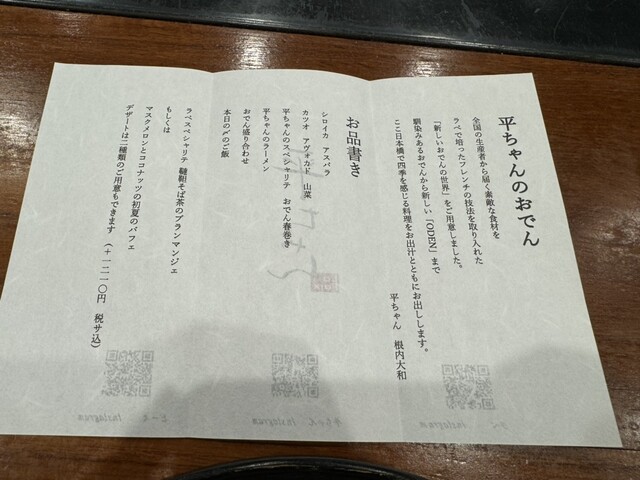 平ちゃんのおでん
全国の生産者から届く素敵な食材を
ラペで培ったフレンチの技法を取り入れた
「新しいおでんの世界」をご用意しました。
馴染みあるおでんから新しい「ODEN」まで
ここ日本橋で四季を感じる料理をお出汁とともにお出しします。
平ちゃん 根内大和
お品書き
シロイカ アスパラ
カツオ アヴォカド 山菜
平ちゃんのスペシャリテ おでん春巻き
平ちゃんのラーメン
おでん盛り合わせ
本日の〆のご飯
ラペスペシャリテ 韃靼そば茶のブランマンジェ
もしくは
マスクメロンとココナッツの初夏のパフェ
デザートは二種類のご用意もできます (+一二一〇円 税サ込)
Instagram
Instagram
Instagram